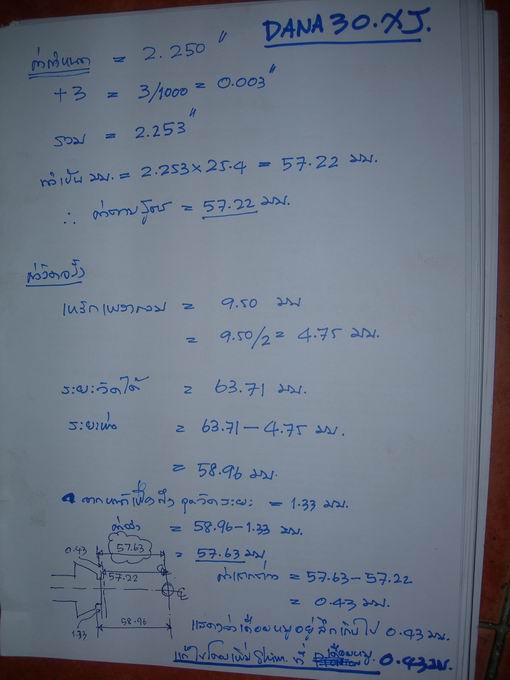 DANA 30. XJ.
ค่ากำหนด = 2.250"
+3 = 3/1000 = 0.003"
รวม = 2.253"
ทำเป็น มม. = 2.253 x 25.4 = 57.22 มม.
∴ ค่าตามสูตร = 57.22 มม.
ค่าวัดจริง
เหล็กเพลากลม = 9.50 มม
= 9.50/2 = 4.75 มม.
ระยะวัดได้ = 63.71 มม.
ระยะ = 63.71 - 4.75 มม.
= 58.96 มม.
ถึง จุดวัดระยะ = 1.33 มม.
= 58.96 - 1.33 มม.
= 57.63 มม
0.43
57.63
57.22
1.33
58.96
= 57.63 - 57.22
= 0.43 มม.
แสดงว่าเดือยหมูอยู่ลึกเกินไป 0.43 มม.
แก้ไขโดยเพิ่ม Shim. ที่ เดือยหมู 0.43 มม.